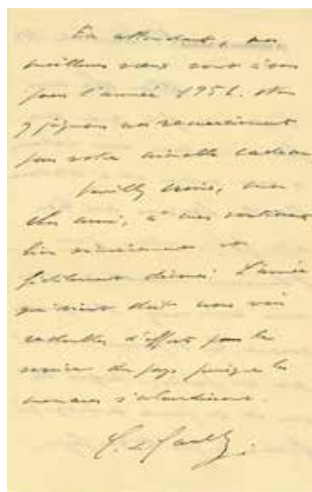 En attendant, mes
meilleurs vœux sont à vous
pour l'année 1951. Nous
y joignons nos remerciements
pour votre aimable cadeau
Veuillez croire, mon
cher ami, à mes sentiments
bien sincèrement et
fidèlement dévoués. L'année
qui vient doit nous voir
redoubler d'efforts pour le
service du pays puisque les
menaces s'alourdissent.
C. de Gaulle.